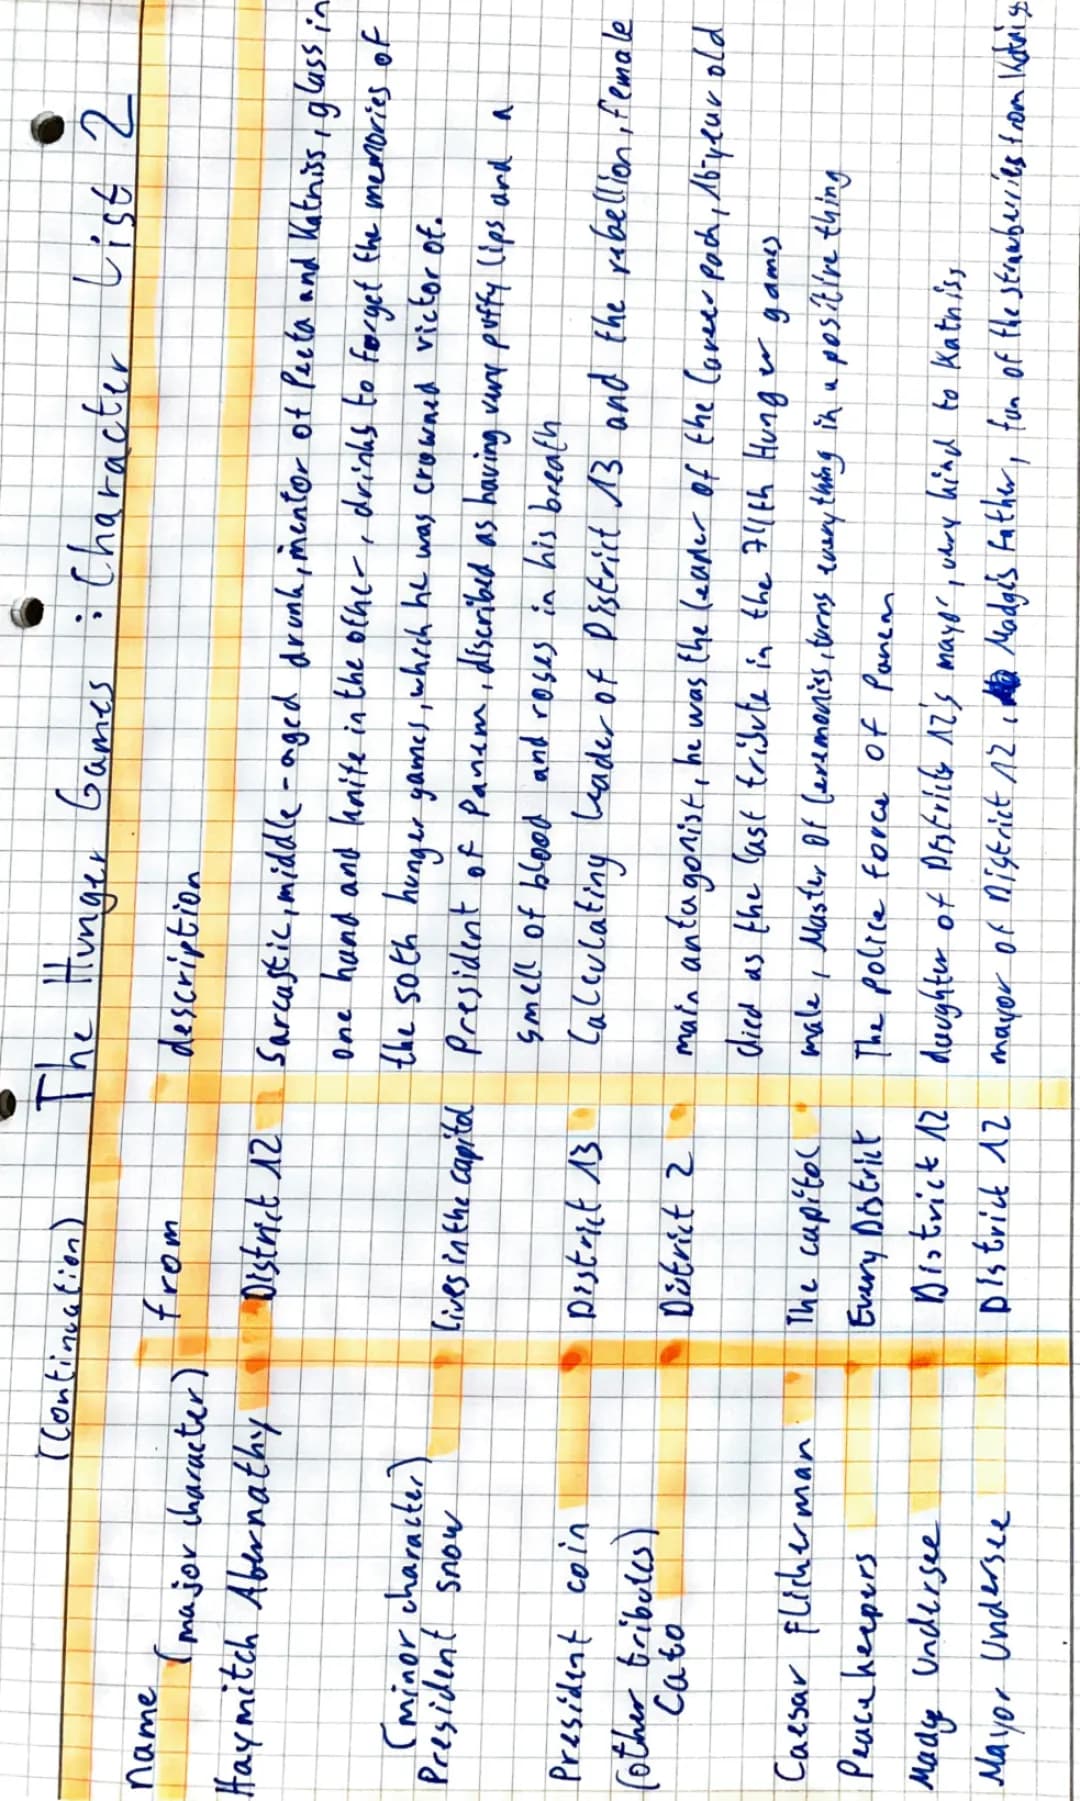 (Continuation) The Hunger Games : Character List 2
name from description
(major character)
Haymitch Abernathy District 12 Sarcastic, middle-aged drunk, mentor of Peeta and Katniss, glass in
one hand and knife in the other, drinks to forget the memories of
the 50th hunger games, which he was crowned victor of.
(minor character)
President snow lives in the capitol President of Panem, discribed as having very puffy lips and a
smell of blood and roses in his breath
President coin District 13 Calculating leader of District 13 and the rebellion, female
(other tributes)
Cato District 2 main antagonist, he was the leader of the Career pack, 16-year old
died as the last tribute in the 74th Hunger games
Caesar Flickerman The capitol male, Master of Ceremonies, turns everything in a positive thing
Peacekeepers Every District The police force of Panem
Madge Undersee District 12 daughter of District 12's mayor, very kind to Katniss
Mayor Undersee District 12 mayor of District 12, Madges father, fan of the strawberries from Katniss